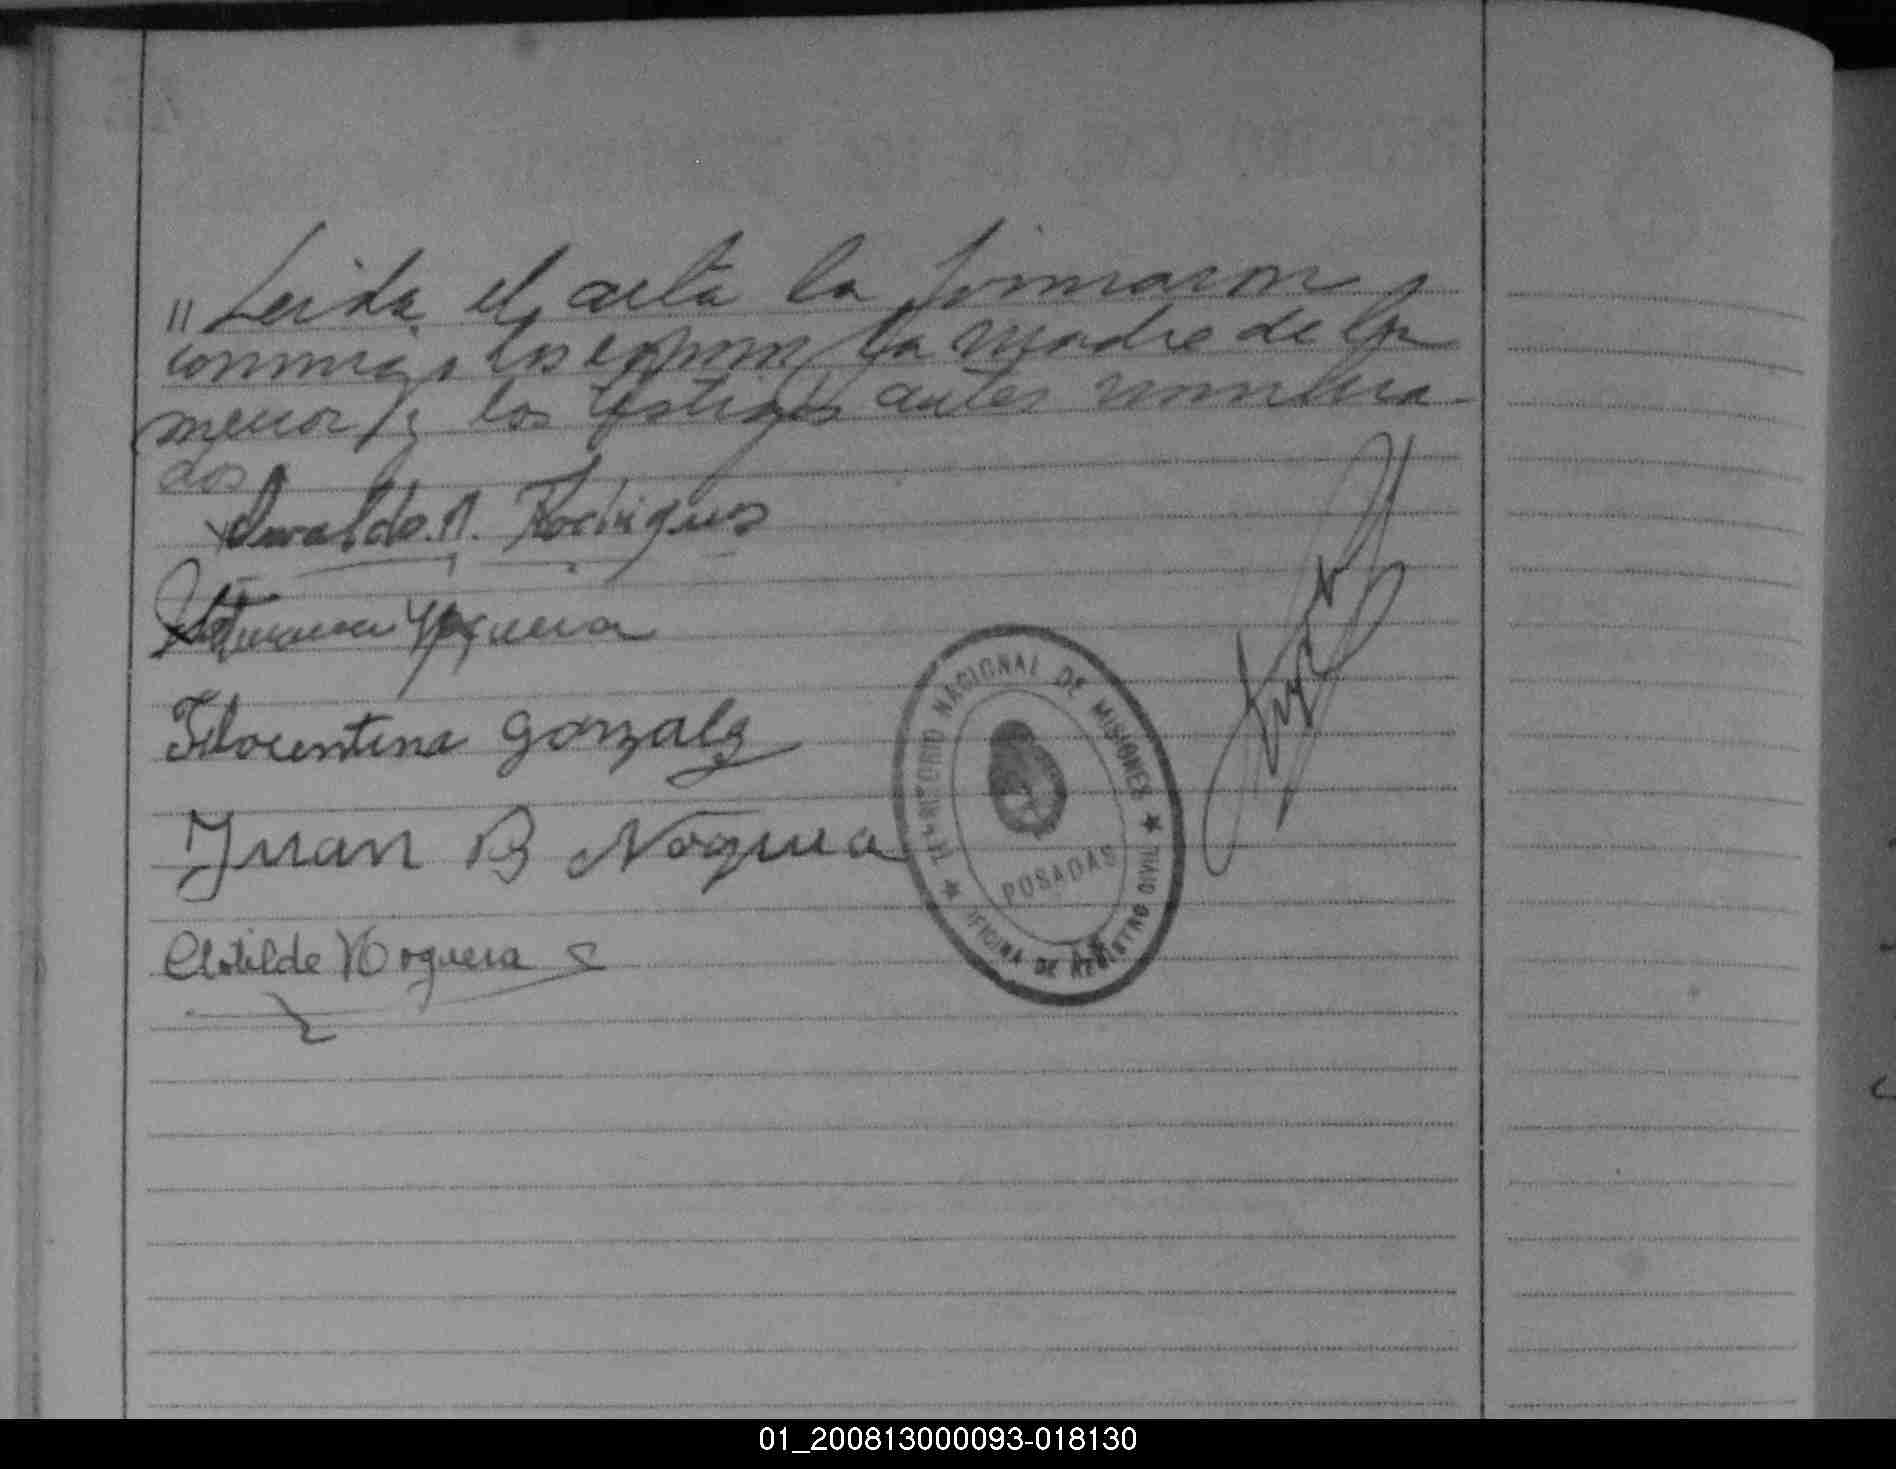 " Leida el acta la firmaron
conmigo los espos. la madre de la
menor y los testigos antes nombra-
dos
Osvaldo A. Rodriguez
Noguera
Florentina Gonzalez
Juan B Noguera
Clotilde Noguera
TERRITORIO NACIONAL DE MISIONES
POSADAS
OFICINA DE REGISTRO CIVIL
01_200813000093-018130